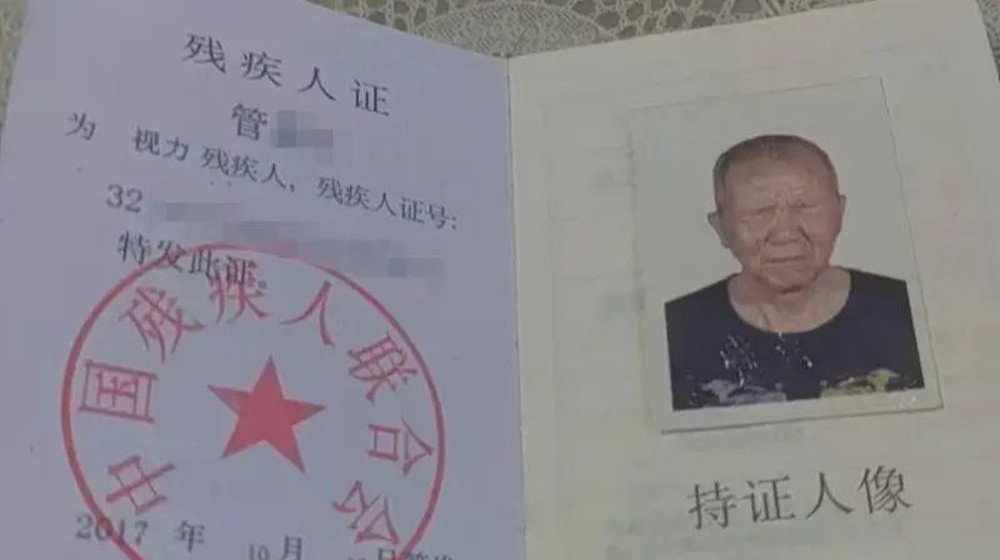 残疾人证
管
为 视力 残疾人，残疾人证号：
32
特发此证。
中国残疾人联合会
2017 年 10 月
持证人像